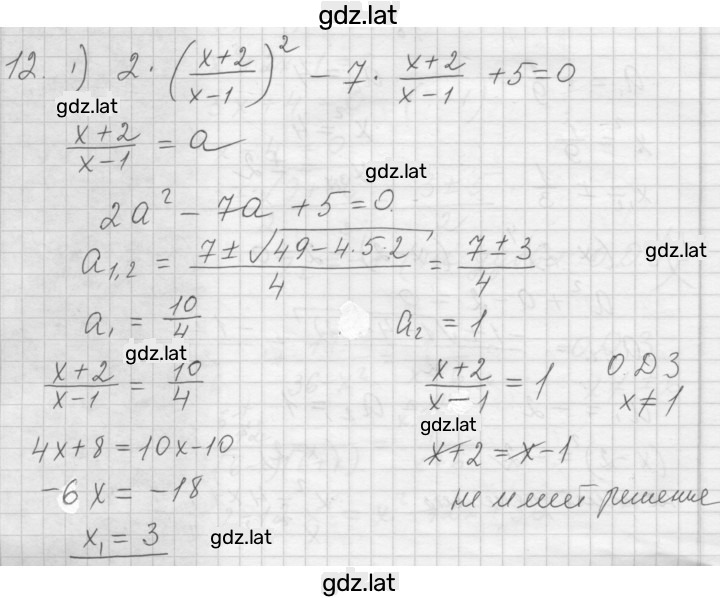 gdz.lat
12. 1) 2·((x+2)/(x-1))² - 7·(x+2)/(x-1) + 5 = 0
gdz.lat
(x+2)/(x-1) = a
gdz.lat
2a² - 7a + 5 = 0
a₁,₂ = (7 ± √(49-4·5·2))/4 = (7 ± 3)/4
gdz.lat
a₁ = 10/4 a₂ = 1
gdz.lat
(x+2)/(x-1) = 10/4 (x+2)/(x-1) = 1 ОДЗ
x ≠ 1
gdz.lat
4x+8 = 10x-10 x+2 = x-1
-6x = -18 не имеет решение
x₁ = 3 gdz.lat
gdz.lat